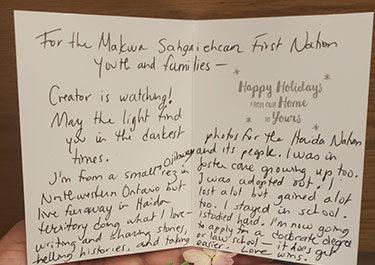 For the Makwa Sahgaiehcan First Nation
Youth and families —
Creator is watching!
May the light find
you in the darkest
times.
I'm from a small Ojibway rez in
Northwestern Ontario but
live far away in Haida
territory doing what I love —
writing and sharing stories,
telling histories, and taking
Happy Holidays
FROM our Home
to Yours
photos for the Haida Nation
and its people. I was in
foster care growing up too.
I was adopted out! I
lost alot but gained alot
too. I stayed in school.
I studied hard. I'm now going
to apply for a doctorate degree
or law school — it does get
easier. Love wins.